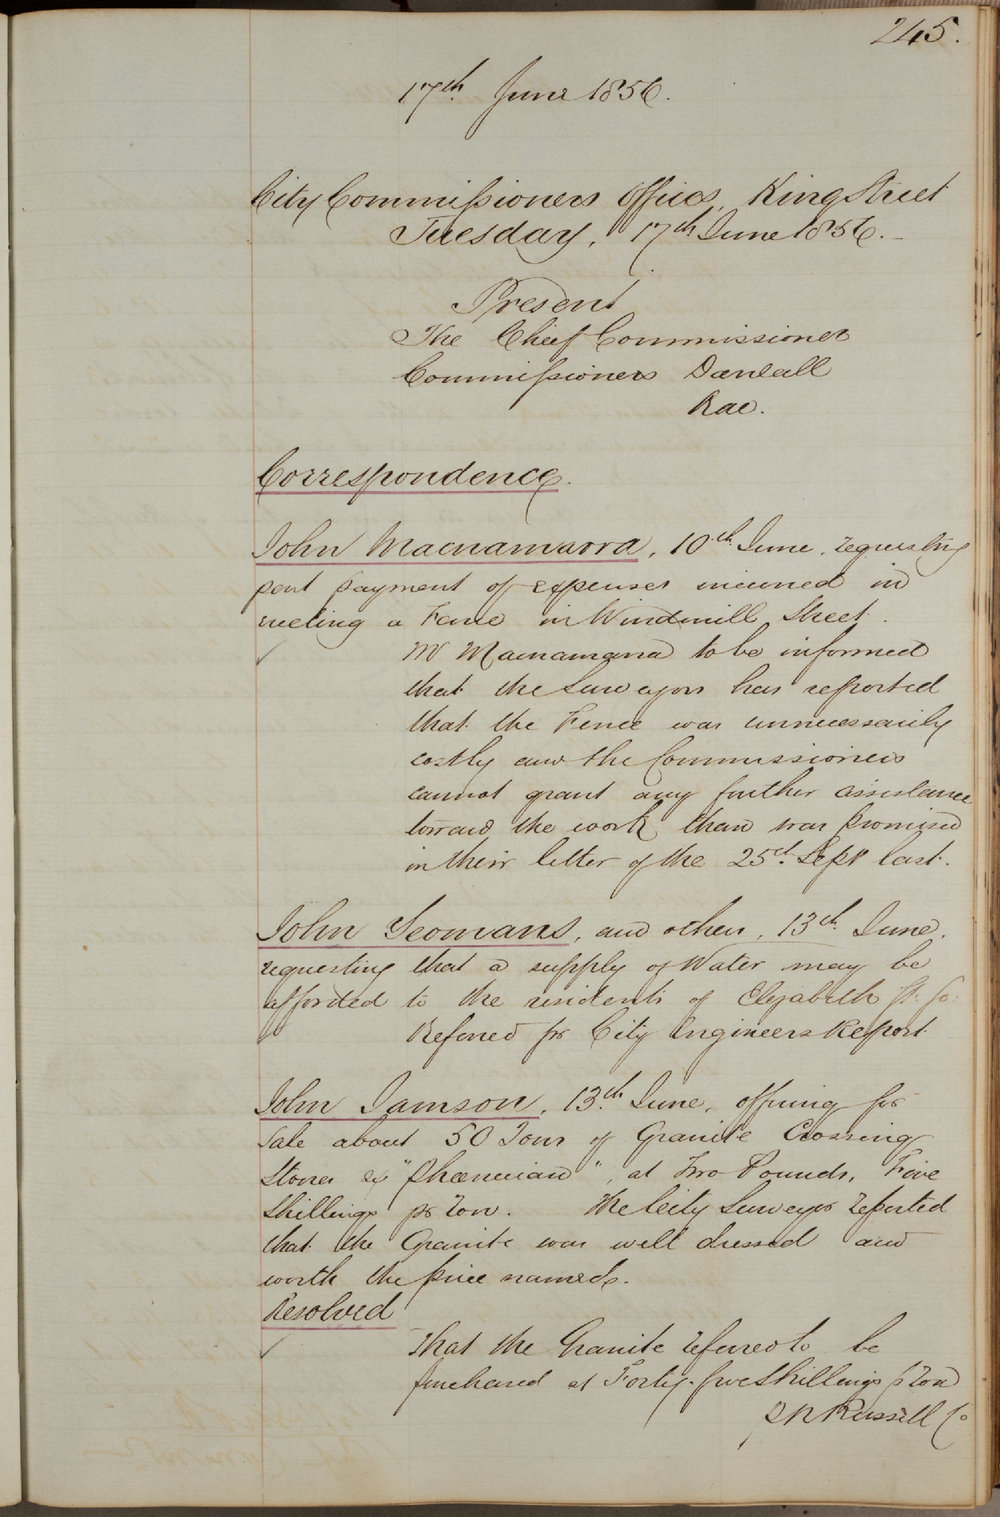 245.
17th. June 1856.
City Commissioners Office, King Street
Tuesday, 17th June 1856.
Present
The Chief Commissioner
Commissioners Darvall
Rae.
Correspondence.
John Macnamarra, 10th June, requesting
part payment of expenses incurred in
erecting a Fence in Windmill Street.
Mr Macnamara to be informed
that the Surveyor has reported
that the Fence was unnecessarily
costly and the Commissioners
cannot grant any further assistance
toward the work than was promised
in their letter of the 25th. Sept last.
John Yeomans, and others, 13th June,
requesting that a supply of Water may be
afforded to the residents of Elizabeth St. So.
Referred for City Engineers Report
John Jamson, 13th June, offering for
Sale about 50 Tons of Granite Crossing
Stones ex "Phoenician", at Two Pounds, Five
Shillings pr Ton. The City Surveyor reported
that the Granite was well dressed and
worth the price named.
Resolved
That the Granite referred to be
purchased at Forty-five Shillings p Ton
Russell Co